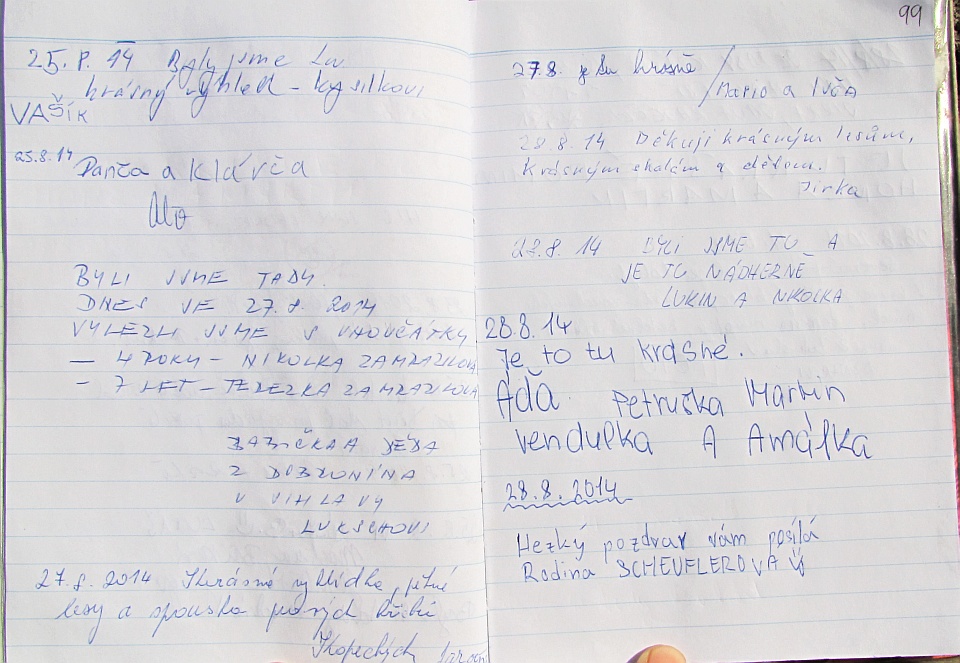 25. 8. 14 Byly jsme tu
krásný výhled - Kysilkovi
VAŠÍK
25.8.14 Danča a Klárča
BYLI JSME TADY.
DNES VE 27.8.2014
VYLEZLI JSME S VNOUČÁTKY
- 4 ROKY - NIKOLKA ZAMRAZILOVÁ
- 7 LET - TEREZKA ZAMRAZILOVÁ
BABIČKA A DĚDA
Z DOBRONÍNA
U JIHLAVY
LUKSCHOVI
27.8.2014 krásná vyhlídka, pěkné
lesy a spousta
99
27.8. je tu krásně
Mario a IVČA
28.8.14 Děkuji krásným lesům,
krásným skalám a dětem.
Jirka
27.8.14 BYLI JSME TU A
JE TU NÁDHERNĚ
LUKIN A NIKOLKA
28.8.14
Je to tu krásné.
Áďa Petruška Martin
Vendulka A Amálka
28.8.2014
Hezký pozdrav vám posílá
Rodina SCHEUFLEROVA